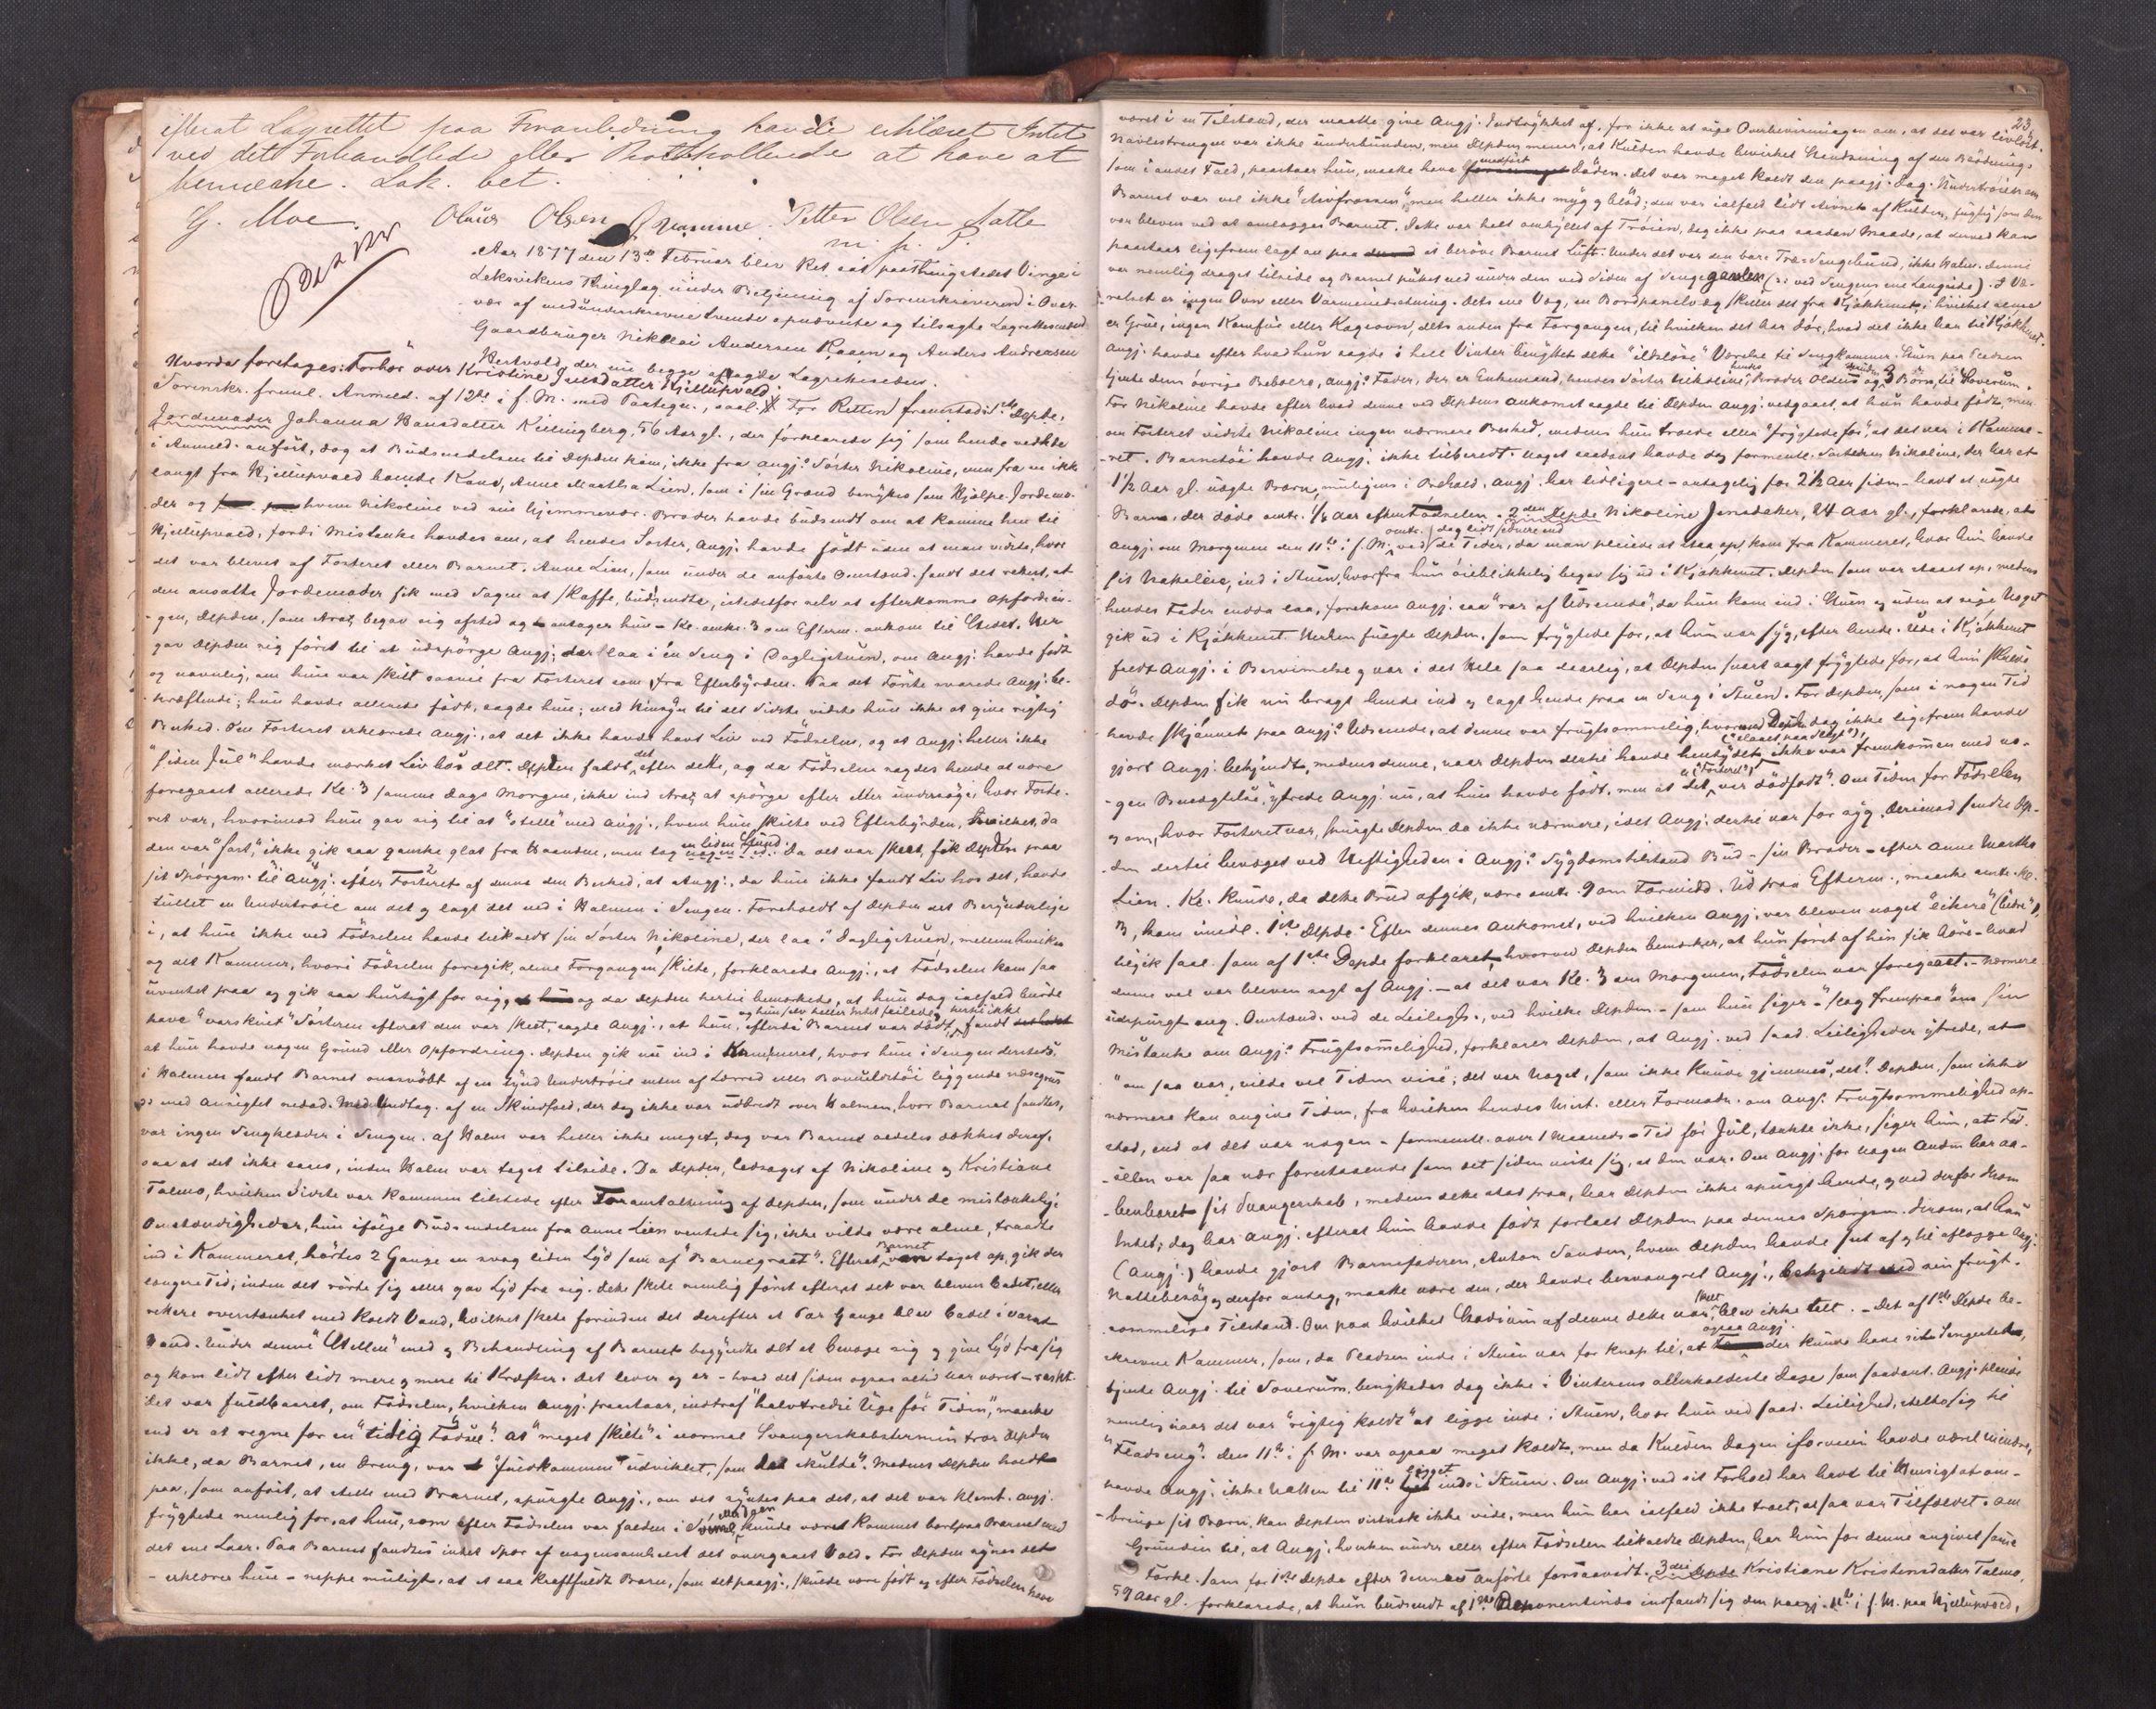 efterat Lagrettet paa Foranledning havde erklæret Intet
ved det Forhandlede eller Protokollerede at have at
bemærke. Lak. bet.
G. Moe. Olaus Olsen Petter Olsen Aatle
m. p. P.
Aar 1877 den 13de Februar blev Ret sat paa Thingstedet Vinge i
Leksvikens Thinglag under Betjening af Sorenskriveren i Over
vær af medunderskrevne tvende opnævnte og tilsagte Lagrettesmænd
Gaardbruger Nikolai Andersen Kaaen og Anders Andreasen
Hertvold, der nu begge aflagde Lagretteseden.
Hvorda foretages: Forhør over Kristine Jensdatter Hjellupvald
Sorenskr. freml. Anmeld. af 12te i f. M. med Paategn., saal. For Retten fremstod 1ste Depde,
Jordemoder Johanna Hansdatter Killingberg, 56 Aar gl., der forklarede sig som hende vedkde
i Anmeld. anført, dog at Budsendelsen til Depden kom, ikke fra angj.s Søster Nikoline, men fra en ikke
langt fra Hjellupvald boende Kone, Anne Martha Lien, som i sin Grænd benyttes som Hjælpe-Jordemo-
der og hvem Nikoline ved sin hjemmevær. Broder havde budsendt om at komme hen til
Hjellupvald, fordi Mistanke havdes om, at hendes Søster, Angj. havde født uden at man vidste, hvor
det var blevet af Fosteret eller Barnet. Anne Lien, som under de anførte Omstænd. fandt det rettest, at
den ansatte Jordemoder fik med Sagen at skaffe, budsendte, istedetfor selv at efterkomme Opfordrin-
gen, Depden, som strax begav sig afsted og antager hun - Kl. omtr. 3 om Efterm. ankom til Stedet. Her
gav Depden sig først til at udspørge Angj., der laa i en Seng i Dagligstuen, om Angj. havde født
og navnlig, om hun var skilt saavel fra Fosteret som fra Efterbyrden. Paa det Første svarede Angj. be-
kræftende; hun havde allerede født, sagde hun; med Hensyn til det Sidste vidste hun ikke at give rigtig
Besked. Om Fosteret erklærede Angj., at det ikke havde havt Liv ved Fødselen, og at Angj. heller ikke
"siden Jul" havde mærket Liv hos det. Depden faldt det efter dette, og da Fødselen sagdes hende at være
foregaaet allerede Kl. 3 samme Dags Morgen, ikke ind strax at spørge efter eller undersøge, hvor Foste-
ret var, hvorimod hun gav sig til at "stelle" med Angj., hvem hun skilte ved Efterbyrden, hvilket, da
den var "fast", ikke gik saa ganske glat fra Haanden, men tog en liden Stund. Da det var skeet, fik Depden paa
sit Spørgsm. til Angj. efter Fosteret af denne den Besked, at Angj., da hun ikke fandt Liv hos det, havde
tullet en Undertrøie om det og lagt det ned i Halmen i Sengen. Foreholdt af Depden det Besynderlige
i, at hun ikke ved Fødselen havde tilkaldt sin Søster Nikoline, der laa i Dagligstuen, mellem hvilken
og det Kammer, hvori Fødselen foregik, alene Forgangen skilte, forklarede Angj., at Fødselen kom saa
uventet paa og gik saa hurtigt for sig, og da Depden hertil bemærkede, at hun dog ialfald burde
have "varskuet" Søsteren efterat den var skeet, sagde Angj., at hun, efterdi Barnet var dødt, og hun selv heller Intet feilede, hertil ikke fandt
at hun havde nogen Grund eller Opfordring. Depden gik nu ind i Kammeret, hvor hun i Sengen dersteds
i Halmen fandt Barnet omsvøbt af en tynd Undertrøie enten af Lærred eller Bomuldstøi liggende næsegrus
ɔ: med Ansigtet nedad. Med Undtag. af en Skindfeld, der dog ikke var udbredt over Halmen, hvor Barnet fandtes,
var ingen Sengklæder i Sengen. Af Halm var heller ikke meget, dog var Barnet aldeles dækket deraf,
saa at det ikke saaes, inden Halm var taget tilside. Da Depden, ledsaget af Nikoline og Kristiane
Talmo, hvilken Sidste var kommen tilstede efter Foranstaltning af Depden, som under de mistænkelige
Omstændigheder, hun ifølge Budsendelsen fra Anne Lien ventede sig, ikke vilde være alene, traadte
ind i Kammeret, hørtes 2 Gange en svag liden Lyd som af "Barnegraat". Efterat Barnet var taget op, gik der
længere Tid, inden det rørte sig eller gav Lyd fra sig. Dette skete nemlig først efterat det var bleven badet, eller
rettere overstænket med koldt Vand, hvilket skete forinden det derefter et Par Gange blev badet i varmt
Vand. Under denne "Stellen" med og Behandling af Barnet begyndte det at bevæge sig og give Lyd fra sig
og kom lidt efter lidt mere og mere til Kræfter. Det lever og er - hvad det siden ogsaa altid har været - raskt.
Det var fuldbaaret, om Fødselen, hvilken Angj. paastaar, indtraf "halvtredie Uge før Tiden", maaske
end er at regne for en "tidlig Fødsel". At "meget skilte" i normal Svangerskabstermin tror Depden
ikke, da Barnet, en Dreng, var "fuldkommen udviklet, som det skulde". Medens Depden holdt
paa, som anført, at stelle med Barnet, spurgte Angj., om det syntes paa det, at det var klemt. Angj.
frygtede nemlig for, at hun, som efter Fødselen var falden i Svime, muligen kunde været kommet bortpaa Barnet med
det ene Laar. Paa Barnet fandtes intet Spor af nogensomhelst det overgaaet Vold. For Depden synes det
- erklærer hun - neppe muligt, at et saa kraftfuldt Barn, som det paagj., skulde være født og efter Fødselen have
23.
været i en Tilstand, der maatte give Angj. Indtrykket af, for ikke at sige Overbevisningen om, at det var livløst.
Navlestrengen var ikke underbunden, men Depden mener, at Kulden havde bevirket Standsning af den Blødning,
som i andet Fald, paastaar hun, maatte have medført Døden. Det var meget koldt den paagj. Dag. Undertrøien om
Barnet var vel ikke "stivfrossen", men heller ikke myg og blød; den var ialfald lidt stivnet af Kulden, fugtig som den
var bleven ved at omlægges Barnet. Dette var helt omhyllet af Trøien, dog ikke paa saadan Maade, at derved kan
paastaaes ligefrem lagt an paa at berøve Barnet Luft. Under det var den bare Træ-Sengebund, ikke Halm. Denne
var nemlig draget tilside og Barnet puttet ned under den ved Siden af Sengegavlen (ɔ: ved Sengens ene Langside). I Væ-
relset er ingen Ovn eller Varmeindretning. Dets ene Væg, en Bordpanelvæg skiller det fra Kjøkkenet, i hvilket alene
er Grue, ingen Kamfue eller Kogeovn, dets anden fra Forgangen, til hvilken det har Dør, hvad det ikke har til Kjøkkenet.
Angj. havde efter hvad hun sagde i hele Vinter benyttet dette "ildsløse" Værelse til Sengkammer. Stuen paa Pladsen
tjente dens øvrige Beboere, Angj.s Fader, der er Enkemand, hendes Søster Nikoline, hendes Broder Oldus og 3 Børn, til Soverum.
For Nikoline havde efter hvad denne ved Depdens Ankomst sagde til Depden Angj. vedgaaet, at hun havde født, men
om Fosteret vidste Nikoline ingen nærmere Besked, medens hun troede eller "frygtede for", at det var i Kamme-
ret. Barnetøi havde Angj. ikke tilberedt. Noget saadant havde dog forment. Søsteren Nikoline, der har et
1½ Aar gl. uægte Barn, muligens i Behold. Angj. har tidligere - antagelig for 2½ Aar siden - havt et uægte
Barn, der døde omtr. ¼ Aar efter Fødselen. 2den Depde Nikoline Jensdatter, 24 Aar gl., forklarede, at
Angj. om Morgenen den 11te i f. M. omtr. ved de Tider, dog lidt senere end da man pleiede at staa op, kom fra Kammeret, hvor hun havde
sit Natteleie, ind i Stuen, hvorfra hun øieblikkelig begav sig ud i Kjøkkenet. Depden som var staaet op, medens
hendes Fader endda laa, forekom Angj. saa "rar af Udseende", da hun kom ind i Stuen og uden at sige Noget
gik ud i Kjøkkenet. Herhen fulgte Depden, som frygtede for, at hun var syg, efter hende. Ude i Kjøkkenet
faldt Angj. i Besvimelse og var i det Hele saa daarlig, at Depden snart sagt frygtede for, at hun skulde
dø. Depden fik nu bragt hende ind og lagt hende paa en Seng i Stuen. For Depden, som i nogen Tid
havde skjønnet paa Angj.s Udseende, at denne var frugtsommelig, hvorved Depden dog ikke ligefrem havde
gjort Angj. bekjendt, medens denne, naar Depden dertil havde hentydet ("slaaet paa Sligt"), ikke var fremkommen med no-
gen Benægtelse, ytrede Angj. nu, at hun havde født, men at det (ɔ: "Fosteret") var "dødfødt". Om Tiden for Fødselen
og om, hvor Fosteret var, spurgte Depden da ikke nærmere, idet Angj. dertil var for syg. Derimod sendte Dep-
den dertil bevæget ved Heftigheden i Angj.s Sygdomstilstand Bud - sin Broder - efter Anne Martha
Lien. Kl. kunde, da dette Bud afgik, være omtr. 9 om Formidd. Ud paa Efterm., maaske omtr. Kl.
3, kom imidl. 1ste Depde. Efter dennes Ankomst, ved hvilken Angj. var bleven noget "likere" (bedre),
tilgik saal. som af 1ste Depde forklaret, hvorom Depden bemærker, at hun først af hin fik høre - hvad
denne vel var bleven sagt af Angj. - at det var Kl. 3 om Morgenen, Fødselen var foregaaet. - Nærmere
udspurgt ang. Omstænd. ved de Leiligh., ved hvilke Depden - som hun siger - "slog frempaa" om sin
Mistanke om Angj.s Frugtsommelighed, forklarer Depden, at Angj. ved saad. Leiligheder ytrede, at
"om saa var, vilde vel Tiden vise"; det var Noget, som ikke kunde gjemmes, det". Depden, som ikke
nærmere kan angive Tiden, fra hvilken hendes Mist. eller Formodn. om Angj.s Frugtsommelighed op-
stod, end at det var nogen - forment. over 1 Maaneds - Tid før Jul, tænkte ikke, siger hun, at Fød-
selen var saa nær forestaaende som det siden viste sig, at den var. Om Angj. for nogen Anden har aa-
benbaret sit Svangerskab, medens dette stod paa, har Depden ikke spurgt hende, og ved derfor herom
Intet; dog har Angj. efterat hun havde født fortalt Depden paa dennes Spørgsm. derom, at hun
(Angj.) havde gjort Barnefaderen, Anton Sanden, hvem Depden havde seet af og til aflægge Angj.
Nattebesøg og derfor antog, maatte være den, der havde besvangret Angj., bekjendt med sin frugt-
sommelige Tilstand. Om paa hvilket Stadium af denne dette var skeet, blev ikke talt. - Det af 1ste Depde be-
skrevne Kammer, som, da Pladsen inde i Stuen var for knap til, at ogsaa Angj. der kunde have sit Sengested,
tjente Angj. til Soverum, benyttedes dog ikke i Vinterens allerkoldeste Dage som saadant. Angj. pleiede
nemlig naar det var "rigtig koldt" at ligge inde i Stuen, hvor hun ved saad. Leilighed stelte sig til
"Fladseng". Den 11te i f. M. var ogsaa meget koldt, men da Kulden Dagen iforveien havde været mindre,
havde Angj. ikke Natten til 11te ligget inde i Stuen. Om Angj. ved sit Forhold har havt til Hensigt at om-
bringe sit Barn, kan Depden vistnok ikke vide, men hun har ialfald ikke troet, at saa var Tilfældet. Om
Grunden til, at Angj. hverken under eller efter Fødselen tilkaldte Depden, har hun for denne angivet samme
Forkl. som for 1ste Depde efter dennes Anførte forsaavidt. 3die Depde Kristiane Kristensdatter Talmo,
59 Aar gl. forklarede, at hun budsendt af 1ste Deponentinde indfandt sig den paagj. 11te i f. M. paa Hjellupvald,